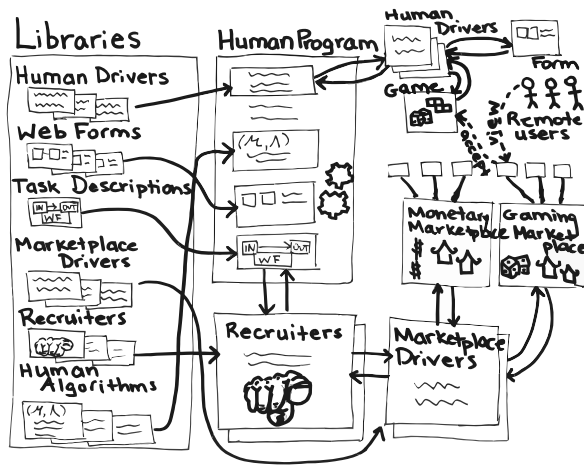 Libraries
Human Drivers
Web Forms
Task Descriptions
IN → OUT
WF
Marketplace
Drivers
Recruiters
Human
Algorithms
(μ, Λ)
HumanProgram
(μ, Λ)
IN → OUT
WF
Recruiters
Human
Drivers
Form
Game
Remote
users
view
accept
Monetary
Marketplace
$
Gaming
Market
place
Marketplace
Drivers